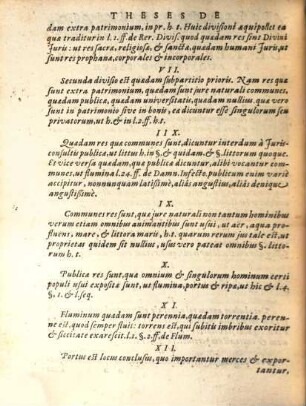 THESES DE
dam extra patrimonium, in pr. h. t. Huic divisioni æquipollet ea
qua traditur in l. 1. ff. de Rer. Divis. quod quædam res sint Divini
Juris: ut res sacræ, religiosæ, & sanctæ, quædam humani Juris, ut
sunt res prophanæ, corporales & incorporales.
VII.
Secunda divisio est quædam subpartitio prioris. Nam res quæ
sunt extra patrimonium, quædam sunt jure naturali communes,
quædam publicæ, quædam universitatis, quædam nullius, quæ vero
sunt in patrimonio sive in bonis, eæ dicuntur esse singulorum seu
privatorum, ut h. & in l. 2. ff. h. t.
IIX.
Quædam res quæ communes sunt, dicuntur interdum à Juris-
consultis publicæ, ut littus h. in § & quidam. & §. littorum quoque.
Et vice versa quædam, quæ publicæ dicuntur, alibi vocantur commu-
nes, ut flumina l. 24. ff. de Damn. Infecto. publicum enim variè
accipitur, nonnunquam latissimè, aliàs angustius, aliàs denique
angustissimè.
IX.
Communes res sunt, quæ jure naturali non tantum hominibus
verum etiam omnibus animantibus sunt usui, ut aër, aqua pro-
fluens, mare, & littora maris, h. t. quarum rerum jus tale est, ut
proprietas quidem sit nullius, usu vero pateat omnibus §. litto-
rum h. t.
X.
Publicæ res sunt, quæ omnium & singulorum hominum certi
populi usui expositæ sunt, ut flumina, portus & ripæ, ut hic & l. 4.
§. 1. & l. seq.
XI.
Fluminum quædam sunt perennia, quædam torrentia. peren-
ne est, quod semper fluit: torrens est, qui subitis imbribus exoritur
& siccitate exarescit. l. 1. §. 2. ff. de Flum.
XII.
Portus est locus conclusus, quo importantur merces & expor-
tantur,